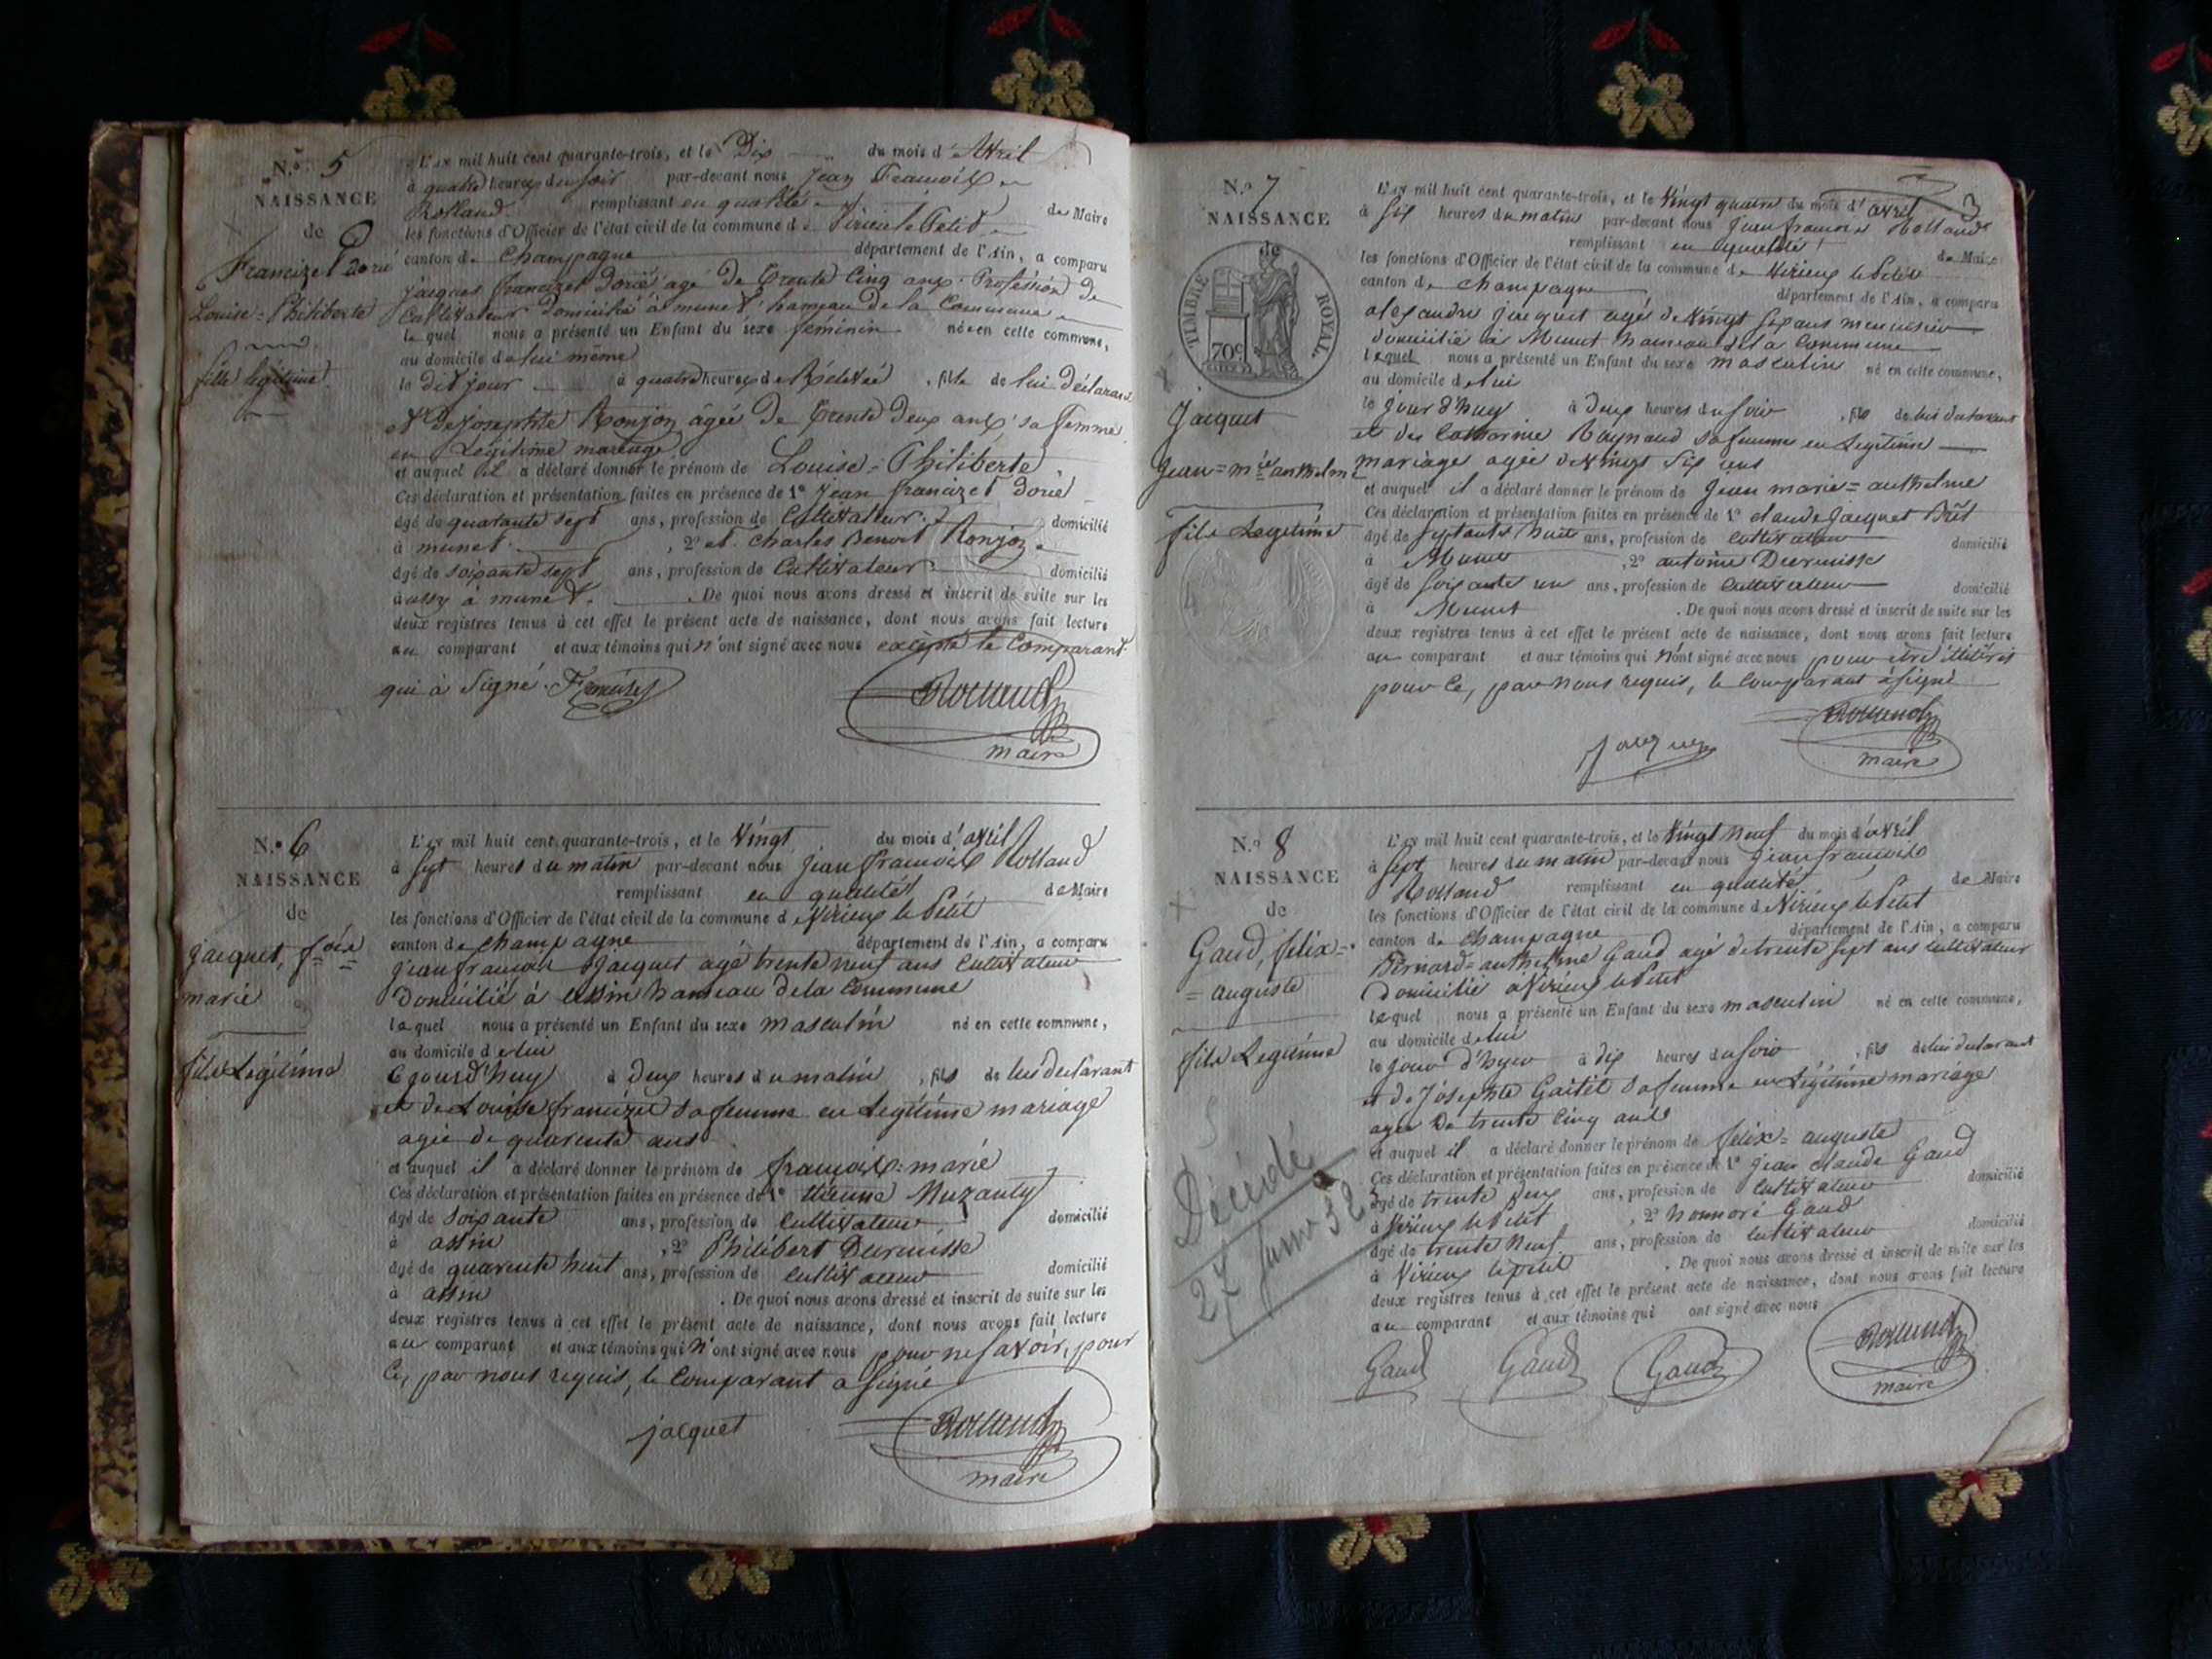 N.° 5
NAISSANCE
de
Francizet dorié
Louise = Philiberte
fille légitime
L'an mil huit cent quarante-trois, et le Dix du mois d'Avril
à quatre heures du soir par-devant nous Jean François
Rolland remplissant en qualité de Maire
les fonctions d'Officier de l'état civil de la commune de Virieu le Petit
canton de Champagne département de l'Ain, a comparu
jacques francizet dorié agé de trente Cinq ans Profession de
Cultivateur domicilié à munet hameau de la Commune
lequel nous a présenté un Enfant du sexe féminin née en cette commune,
au domicile de lui même
le dit jour à quatre heures de Relevée, fille de lui déclarant
et de Josephte Ronjon âgée de trente deux ans sa femme
en légitime mariage
et auquel il a déclaré donner le prénom de Louise = Philiberte
Ces déclaration et présentation faites en présence de 1° Jean francizet dorié
âgé de quarante sept ans, profession de Cultivateur domicilié
à munet , 2° et Charles Benoit Ronjon
âgé de soixante sept ans, profession de Cultivateur domicilié
aussy à munet . De quoi nous avons dressé et inscrit de suite sur les
deux registres tenus à cet effet le présent acte de naissance, dont nous avons fait lecture
au comparant et aux témoins qui n'ont signé avec nous excepté le Comparant
qui à Signé
Rolland
maire
N.° 6
NAISSANCE
de
jacquet, f=ois=
marie
fils Légitime
L'an mil huit cent quarante-trois, et le Vingt du mois d'avril
à sept heures du matin par-devant nous jean françois Rolland
remplissant en qualité de Maire
les fonctions d'Officier de l'état civil de la commune d Virieux le Petit
canton de Champagne département de l'Ain, a comparu
jean françois Jacquet agé trente neuf ans Cultivateur
Domicilié à assin hameau de la Commune
lequel nous a présenté un Enfant du sexe masculin né en cette commune,
au domicile de lui
Cejourd'huy à deux heures du matin , fils de lui déclarant
et de Louise francizet sa femme en Legitime mariage
agée de quarente ans
et auquel il a déclaré donner le prénom de françois = marie
Ces déclaration et présentation faites en présence de 1° étienne
âgé de soixante ans, profession de Cultivateur domicilié
à assin , 2° Philibert
âgé de quarente huit ans, profession de Cultivateur domicilié
à assin . De quoi nous avons dressé et inscrit de suite sur les
deux registres tenus à cet effet le présent acte de naissance, dont nous avons fait lecture
au comparant et aux témoins qui n'ont signé avec nous pour ne savoir, pour
Ce, par nous requis, le Comparant a signé
jacquet
Rolland
maire
3
N.° 7
NAISSANCE
de
TIMBRE ROYAL
70c
Jacquet
Jean = m=ie anthelme
fils Legitime
L'an mil huit cent quarante-trois, et le Vingt quatre du mois d'avril
à six heures du matin par-devant nous jean françois Rolland
remplissant en qualité de Maire
les fonctions d'Officier de l'état civil de la commune de Virieux le Petit
canton de Champagne département de l'Ain, a comparu
alexandre jacquet agé de Vingt six ans menuisier
domicilié à Munet hameau de la Commune
lequel nous a présenté un Enfant du sexe masculin né en cette commune,
au domicile de lui
le jour d'huy à deux heures du soir , fils de lui déclarant
et de Catherine Raynaud sa femme en Legitime
mariage agée de Vingt six ans
et auquel il a déclaré donner le prénom de Jean marie = anthelme
Ces déclaration et présentation faites en présence de 1° claude Jacquet
âgé de septante huit ans, profession de Cultivateur domicilié
à Munet , 2° antoine
âgé de soixante un ans, profession de Cultivateur domicilié
à Munet . De quoi nous avons dressé et inscrit de suite sur les
deux registres tenus à cet effet le présent acte de naissance, dont nous avons fait lecture
au comparant et aux témoins qui n'ont signé avec nous pour être illitérés
pour Ce, par nous requis, le Comparant a signé
Jacquet
Rolland
maire
N.° 8
NAISSANCE
de
Gaud, félix =
= auguste
fils Legitime
Décédé
27 Janv 52
L'an mil huit cent quarante-trois, et le Vingt neuf du mois d'avril
à sept heures du matin par-devant nous jean françois
Rolland remplissant en qualité de Maire
les fonctions d'Officier de l'état civil de la commune d Virieux le Petit
canton de Champagne département de l'Ain, a comparu
Bernard = anthelme Gaud agé de trente sept ans cultivateur
Domicilié a Virieux le Petit
lequel nous a présenté un Enfant du sexe masculin né en cette commune,
au domicile de lui
le jour d'hyer à dix heures du soir , fils de lui déclarant
et de Josephte sa femme en Légitime mariage
agée de trente cinq ans
et auquel il a déclaré donner le prénom de félix = auguste
Ces déclaration et présentation faites en présence de 1° jean claude Gaud
âgé de trente deux ans, profession de Cultivateur domicilié
à Virieux le Petit , 2° honnoré Gaud
âgé de trente neuf ans, profession de Cultivateur domicilié
à Virieux le petit . De quoi nous avons dressé et inscrit de suite sur les
deux registres tenus à cet effet le présent acte de naissance, dont nous avons fait lecture
au comparant et aux témoins qui ont signé avec nous
Gaud Gaud Gaud
Rolland
maire